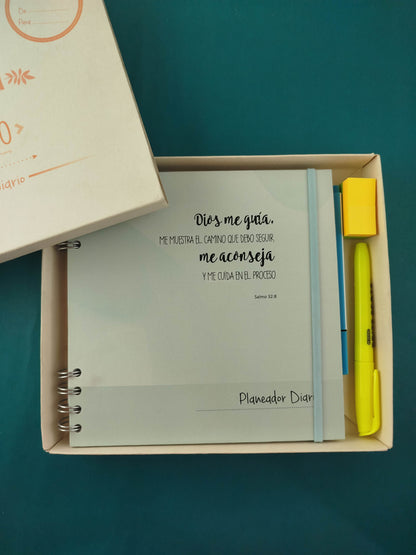 De
Para
diario
Dios me guía,
ME MUESTRA EL CAMINO QUE DEBO SEGUIR,
me aconseja
Y ME CUIDA EN EL PROCESO
Salmo 32:8
Planeador Diari